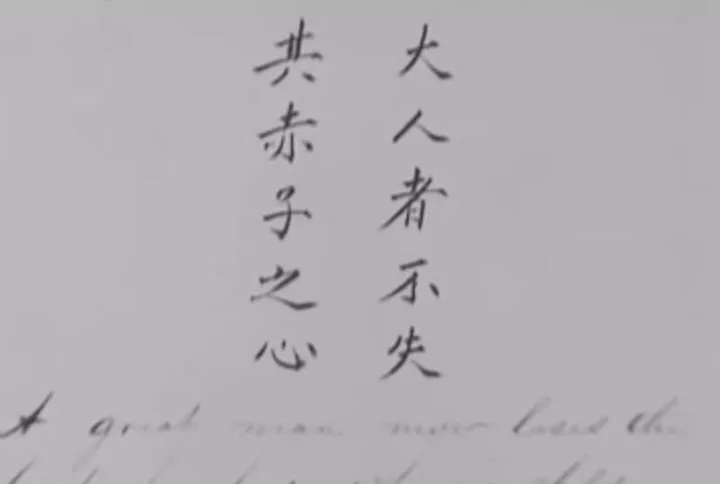 大人者不失
共赤子之心
A great man never loses the